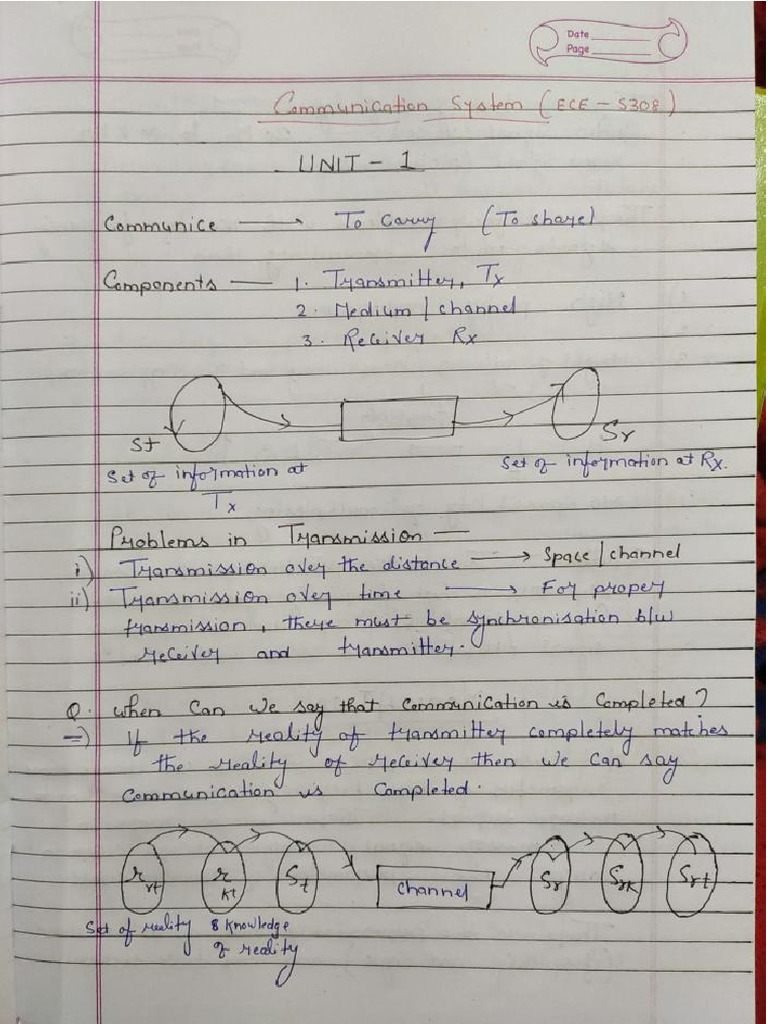 Date
Page
Communication System (ECE - S308)
UNIT - 1
Communice → To carry (To share)
Components — 1. Transmitter, Tx
2. Medium / channel
3. Receiver Rx
St
Sr
Set of information at
Tx
Set of information at Rx.
Problems in Transmission —
i) Transmission over the distance → Space / channel
ii) Transmission over time → For proper
transmission, there must be synchronisation b/w
receiver and transmitter.
Q. When can we say that communication is completed?
⇒) If the reality of transmitter completely matches
the reality of receiver then we can say
communication is completed.
r rt
r kt
St
channel
Sr
Srk
Srt
Set of reality
8 knowledge
of reality